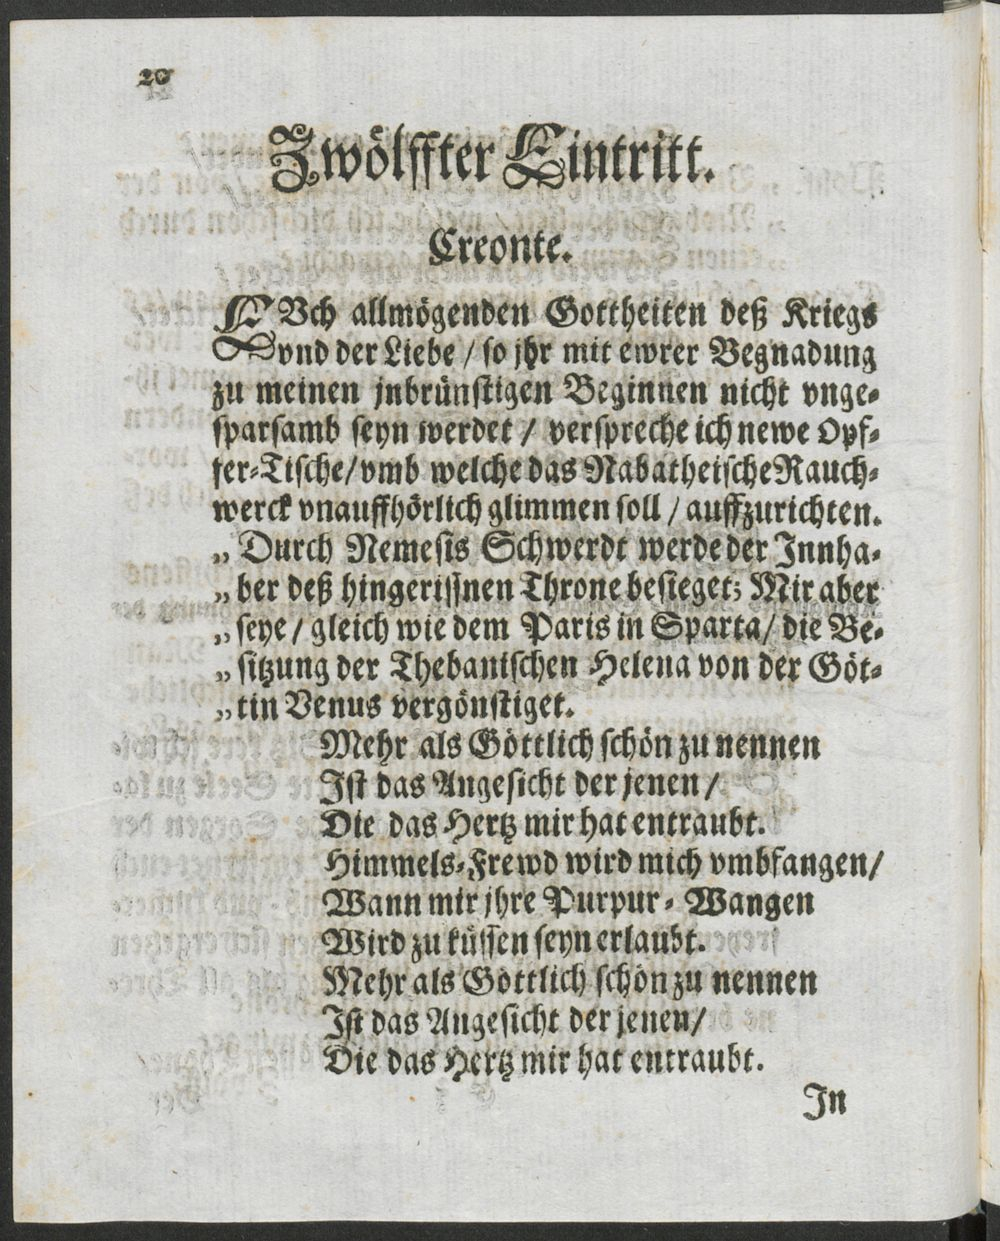 20
Zwölffter Eintritt.
Creonte.
EVch allmögenden Gottheiten deß Kriegs
vnd der Liebe / so jhr mit ewrer Begnadung
zu meinen jnbrünstigen Beginnen nicht vnge-
sparsamb seyn werdet / verspreche ich newe Opf-
fer-Tische/ vmb welche das Nabatheische Rauch-
werck vnauffhörlich glimmen soll / auffzurichten.
„ Durch Nemesis Schwerdt werde der Innha-
„ ber deß hingerissnen Throne besieget; Mir aber
„ seye / gleich wie dem Paris in Sparta/ die Be-
„ sitzung der Thebanischen Helena von der Göt-
„ tin Venus vergönstiget.
Mehr als Göttlich schön zu nennen
Ist das Angesicht der jenen /
Die das Hertz mir hat entraubt.
Himmels-Frewd wird mich vmbfangen/
Wann mir jhre Purpur-Wangen
Wird zu küssen seyn erlaubt.
Mehr als Göttlich schön zu nennen
Ist das Angesicht der jenen/
Die das Hertz mir hat entraubt.
In